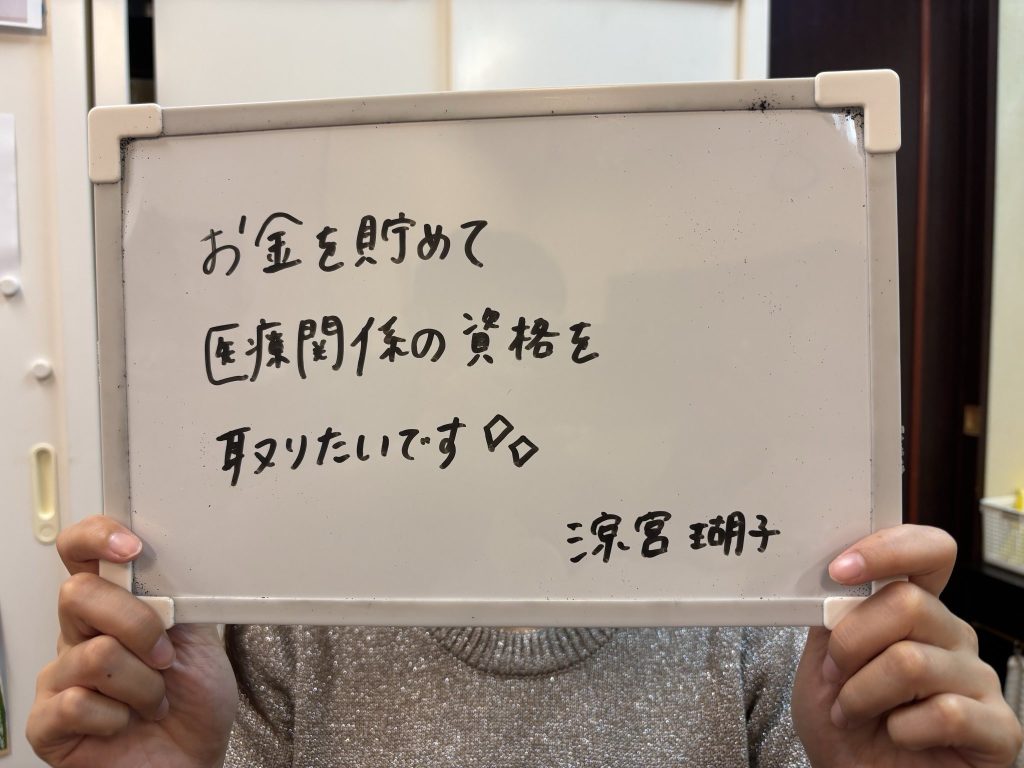 お金を貯めて
医療関係の資格を
取りたいです◇◇
涼宮 瑚子